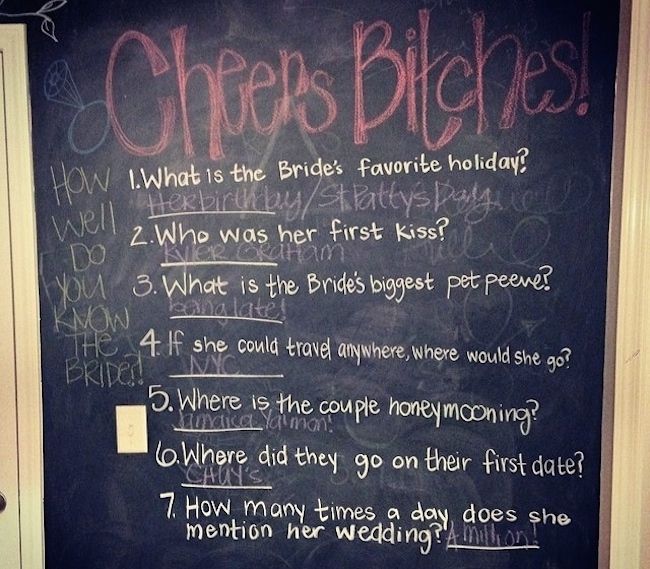 Cheers Bitches!
HOW
Well
DO
YOU
KNOW
THE
BRIDE?!
1. What is the Bride's favorite holiday?
Her birthday / St. Patty's Day
2. Who was her first kiss?
Kyler Graham
3. What is the Bride's biggest pet peeve?
being late!
4 If she could travel anywhere, where would she go?
NYC
5. Where is the couple honeymooning?
Jamaica Ya mon!
6. Where did they go on their first date?
CHUY'S
7. How many times a day does she
mention her wedding? A million!